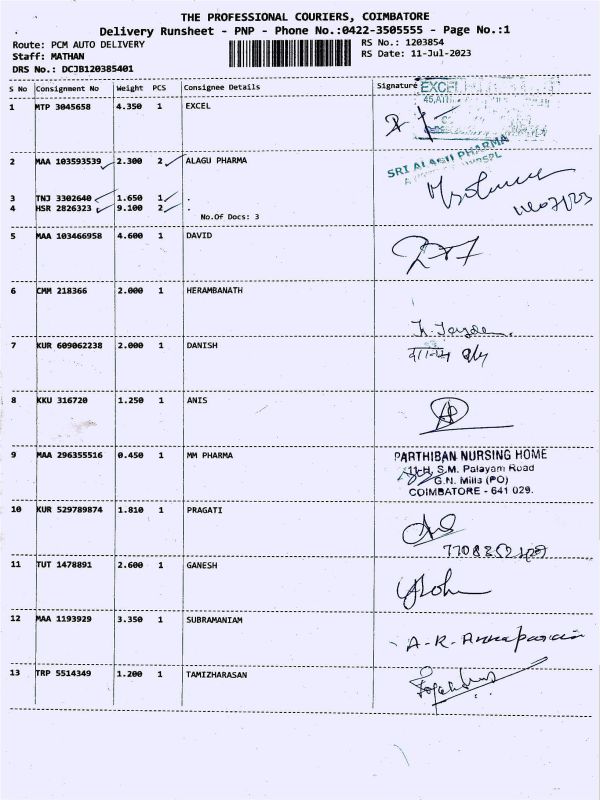 THE PROFESSIONAL COURIERS, COIMBATORE
Delivery Runsheet - PNP - Phone No.:0422-3505555 - Page No.:1
Route: PCM AUTO DELIVERY RS No.: 1203854
Staff: MATHAN RS Date: 11-Jul-2023
DRS No.: DCJB120385401
S No Consignment No Weight PCS Consignee Details Signature
1 MTP 3045658 4.350 1 EXCEL EXCEL
2 MAA 103593539 2.300 2 ALAGU PHARMA SRI ALAGU PHARMA
3 TNJ 3302640 1.650 1 .
4 HSR 2826323 9.100 2 .
No.Of Docs: 3
5 MAA 103466958 4.600 1 DAVID
6 CMM 218366 2.000 1 HERAMBANATH
7 KUR 609062238 2.000 1 DANISH
8 KKU 316720 1.250 1 ANIS
9 MAA 296355516 0.450 1 MM PHARMA PARTHIBAN NURSING HOME
11-H, S.M. Palayam Road
G.N. Mills (PO)
COIMBATORE - 641 029.
10 KUR 529789874 1.810 1 PRAGATI
11 TUT 1478891 2.600 1 GANESH
12 MAA 1193929 3.350 1 SUBRAMANIAM
A-R-
13 TRP 5514349 1.200 1 TAMIZHARASAN